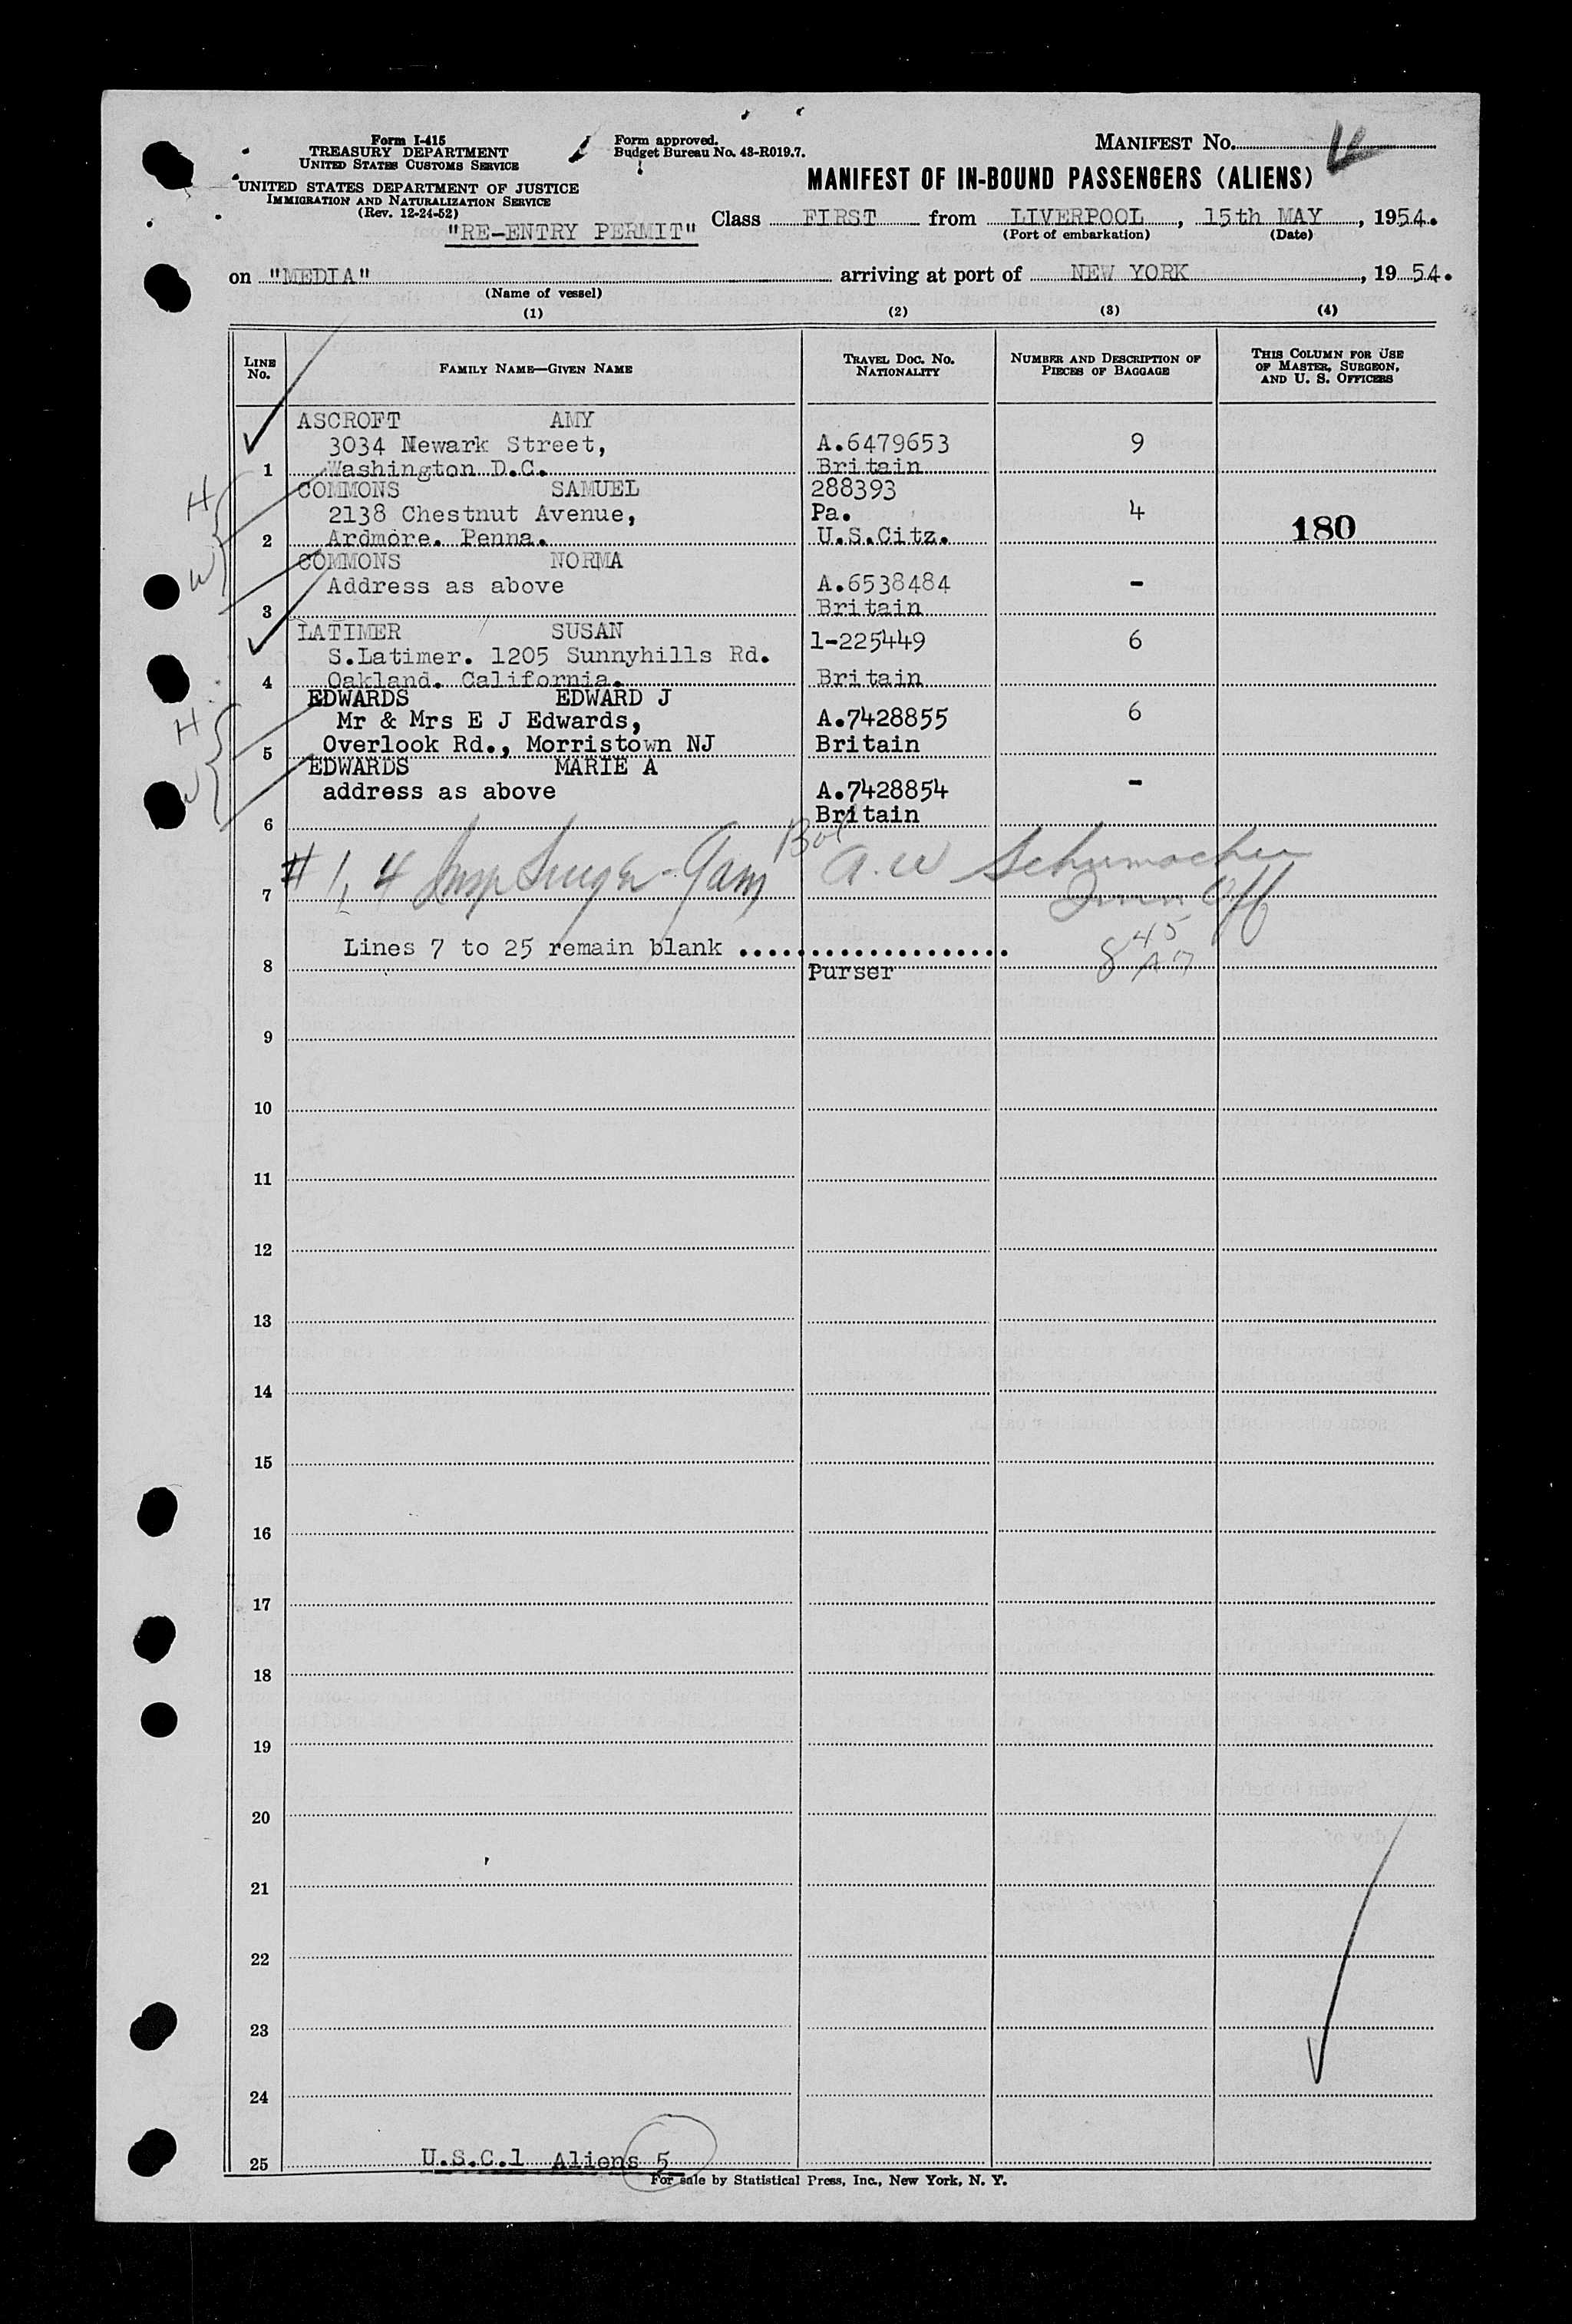 Form I-415
TREASURY DEPARTMENT
UNITED STATES CUSTOMS SERVICE
UNITED STATES DEPARTMENT OF JUSTICE
IMMIGRATION AND NATURALIZATION SERVICE
(Rev. 12-24-52)
Form approved.
Budget Bureau No. 43-R019.7.
MANIFEST NO.
MANIFEST OF IN-BOUND PASSENGERS (ALIENS)
"RE-ENTRY PERMIT"
Class FIRST from LIVERPOOL, 15th MAY, 1954.
(Port of embarkation) (Date)
on "MEDIA" arriving at port of NEW YORK, 1954.
(Name of vessel)
(1) (2) (3) (4)
LINE NO. FAMILY NAME—GIVEN NAME TRAVEL DOC. NO. NATIONALITY NUMBER AND DESCRIPTION OF PIECES OF BAGGAGE THIS COLUMN FOR USE OF MASTER, SURGEON, AND U. S. OFFICERS
ASCROFT AMY
3034 Newark Street, A.6479653 9
1 Washington D.C. Britain
COMMONS SAMUEL 288393
H 2138 Chestnut Avenue, Pa. 4
2 Ardmore. Penna. U.S.Citz. 180
COMMONS NORMA
W Address as above A.6538484 -
3 Britain
LATIMER SUSAN 1-225449 6
S.Latimer. 1205 Sunnyhills Rd.
4 Oakland. California. Britain
EDWARDS EDWARD J
H Mr & Mrs E J Edwards, A.7428855 6
5 Overlook Rd., Morristown NJ Britain
EDWARDS MARIE A
W address as above A.7428854 -
6 Britain
# 1, 4 Insp A. W Schumacher
7 Imm Off
Lines 7 to 25 remain blank ................... 8 45 AM
8 Purser
9
10
11
12
13
14
15
16
17
18
19
20
21
22
23
24
25 U.S.C.1 Aliens 5
For sale by Statistical Press, Inc., New York, N. Y.